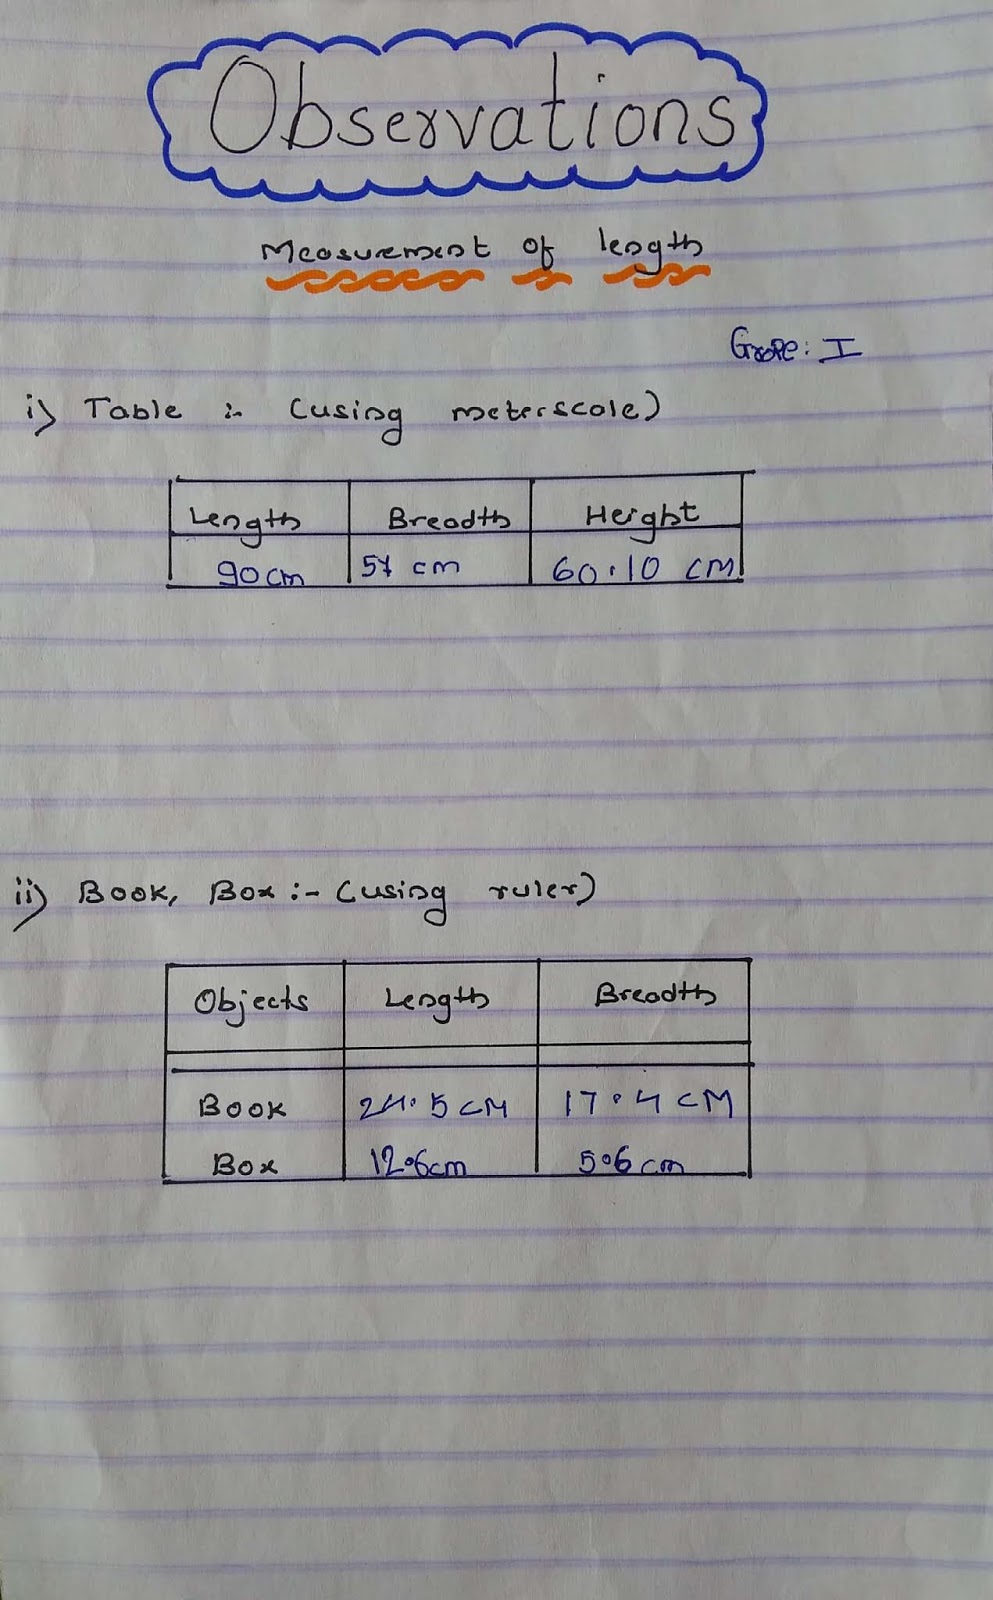 Observations
Measurement of length
Grope: I
i) Table :- (using meterscale)
Length Breadth Height
90cm cm 60.10 CM
ii) Book, Box :- (using ruler)
Objects Length Breadth
Book 24.5 CM 17.4 CM
Box 12.6cm 5.6 cm